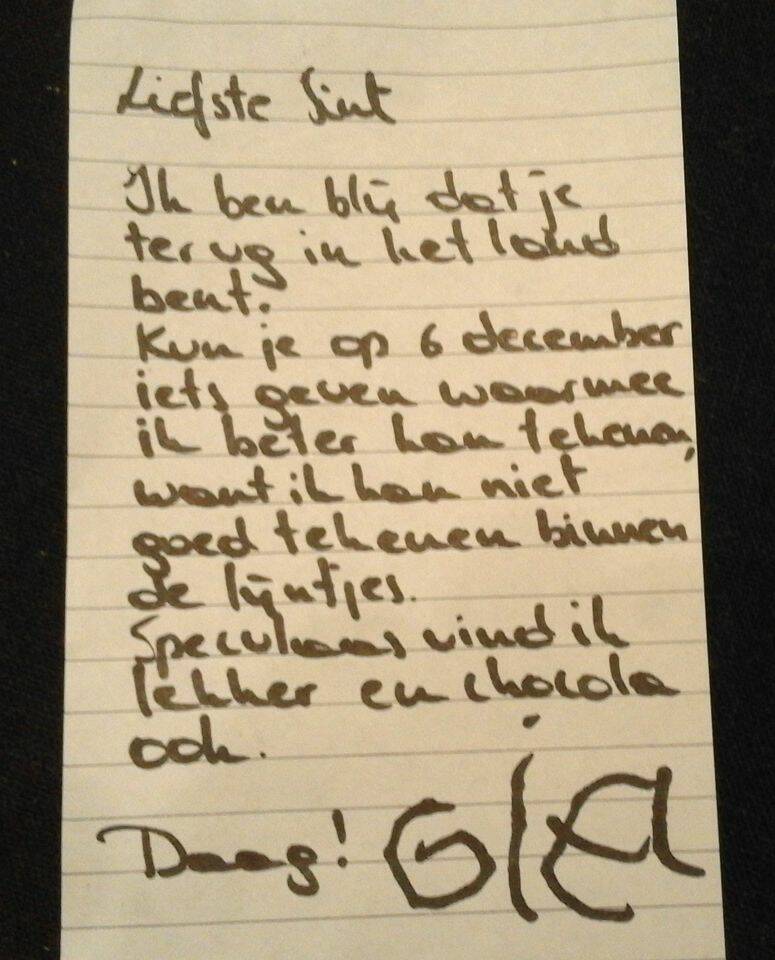 Liefste Sint
Ik ben blij dat je
terug in het land
bent.
Kun je op 6 december
iets geven waarmee
ik beter kan tekenen,
want ik kan niet
goed tekenen binnen
de lijntjes.
Speculaas vind ik
lekker en chocola
ook.
Daag!